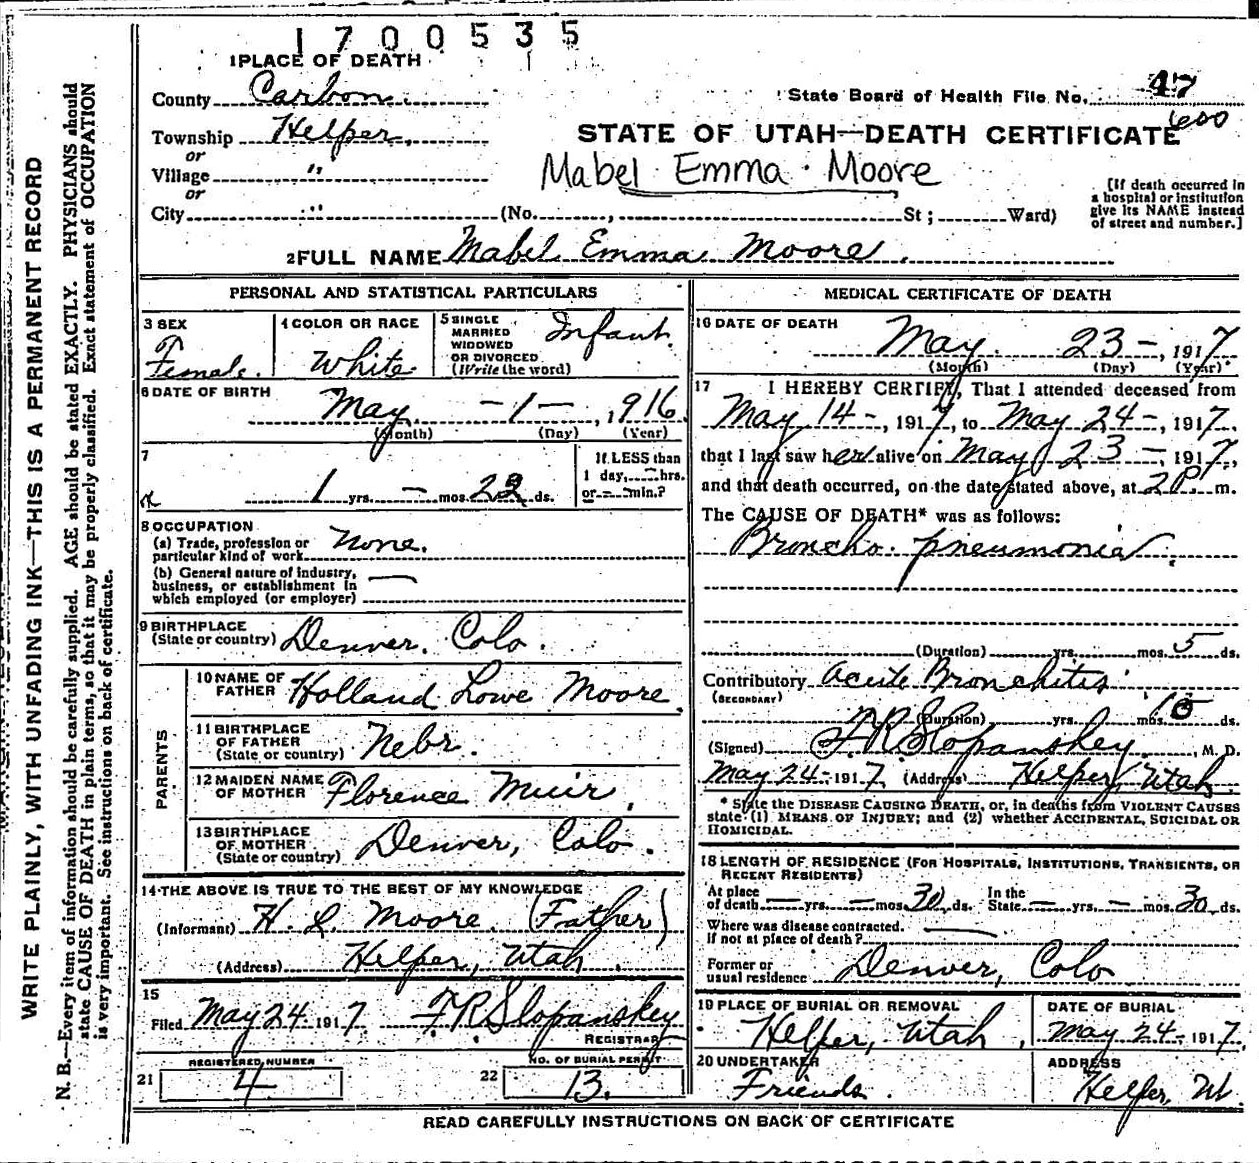 1700535
1 PLACE OF DEATH
County Carbon
State Board of Health File No. 47
600
Township Helper
or
STATE OF UTAH—DEATH CERTIFICATE
Village "
or
Mabel Emma Moore
[If death occurred in
a hospital or institution
give its NAME instead
of street and number.]
City " (No. , St; Ward)
2 FULL NAME Mabel Emma Moore
PERSONAL AND STATISTICAL PARTICULARS
3 SEX
Female.
4 COLOR OR RACE
White
5 SINGLE
MARRIED
WIDOWED
OR DIVORCED
(Write the word)
Infant.
6 DATE OF BIRTH
May - 1 - , 1916
(Month) (Day) (Year)
7
1 yrs. - mos. 22 ds.
If LESS than
1 day, - hrs.
or - - min.?
8 OCCUPATION
(a) Trade, profession or
particular kind of work None.
(b) General nature of industry,
business, or establishment in
which employed (or employer) —
9 BIRTHPLACE
(State or country) Denver. Colo.
PARENTS
10 NAME OF
FATHER Holland Lowe Moore
11 BIRTHPLACE
OF FATHER
(State or country) Nebr.
12 MAIDEN NAME
OF MOTHER Florence Muir
13 BIRTHPLACE
OF MOTHER
(State or country) Denver, Colo.
14 THE ABOVE IS TRUE TO THE BEST OF MY KNOWLEDGE
(Informant) H. L. Moore. (Father)
(Address) Helper, Utah.
15
Filed May 24 1917. F R Slopanskey
REGISTRAR
REGISTERED NUMBER
21 4
NO. OF BURIAL PERMIT
22 13.
MEDICAL CERTIFICATE OF DEATH
16 DATE OF DEATH
May. 23 - , 1917
(Month) (Day) (Year)
17 I HEREBY CERTIFY, That I attended deceased from
May 14 - , 1917, to May 24 - , 1917.
that I last saw her alive on May 23 - , 1917,
and that death occurred, on the date stated above, at 2 P. m.
The CAUSE OF DEATH* was as follows:
Broncho. pneumonia.
(Duration) yrs. mos. 5 ds.
Contributory Acute Bronchitis
(SECONDARY)
(Duration) yrs. mos. 10 ds.
(Signed) F R Slopanskey, M. D.
May 24 - 1917. (Address) Helper, Utah.
* State the DISEASE CAUSING DEATH, or, in deaths from VIOLENT CAUSES
state (1) MEANS OF INJURY; and (2) whether ACCIDENTAL, SUICIDAL OR
HOMICIDAL.
18 LENGTH OF RESIDENCE (FOR HOSPITALS, INSTITUTIONS, TRANSIENTS, OR
RECENT RESIDENTS)
At place
of death — yrs. — mos. 30 ds.
In the
State — yrs. — mos. 30 ds.
Where was disease contracted.
If not at place of death? —
Former or
usual residence Denver, Colo
19 PLACE OF BURIAL OR REMOVAL
Helper, Utah,
DATE OF BURIAL
May 24 - 1917.
20 UNDERTAKER
Friends.
ADDRESS
Helper, Ut.
READ CAREFULLY INSTRUCTIONS ON BACK OF CERTIFICATE
WRITE PLAINLY, WITH UNFADING INK—THIS IS A PERMANENT RECORD
N. B.—Every item of information should be carefully supplied. AGE should be stated EXACTLY. PHYSICIANS should
state CAUSE OF DEATH in plain terms, so that it may be properly classified. Exact statement of OCCUPATION
is very important. See instructions on back of certificate.